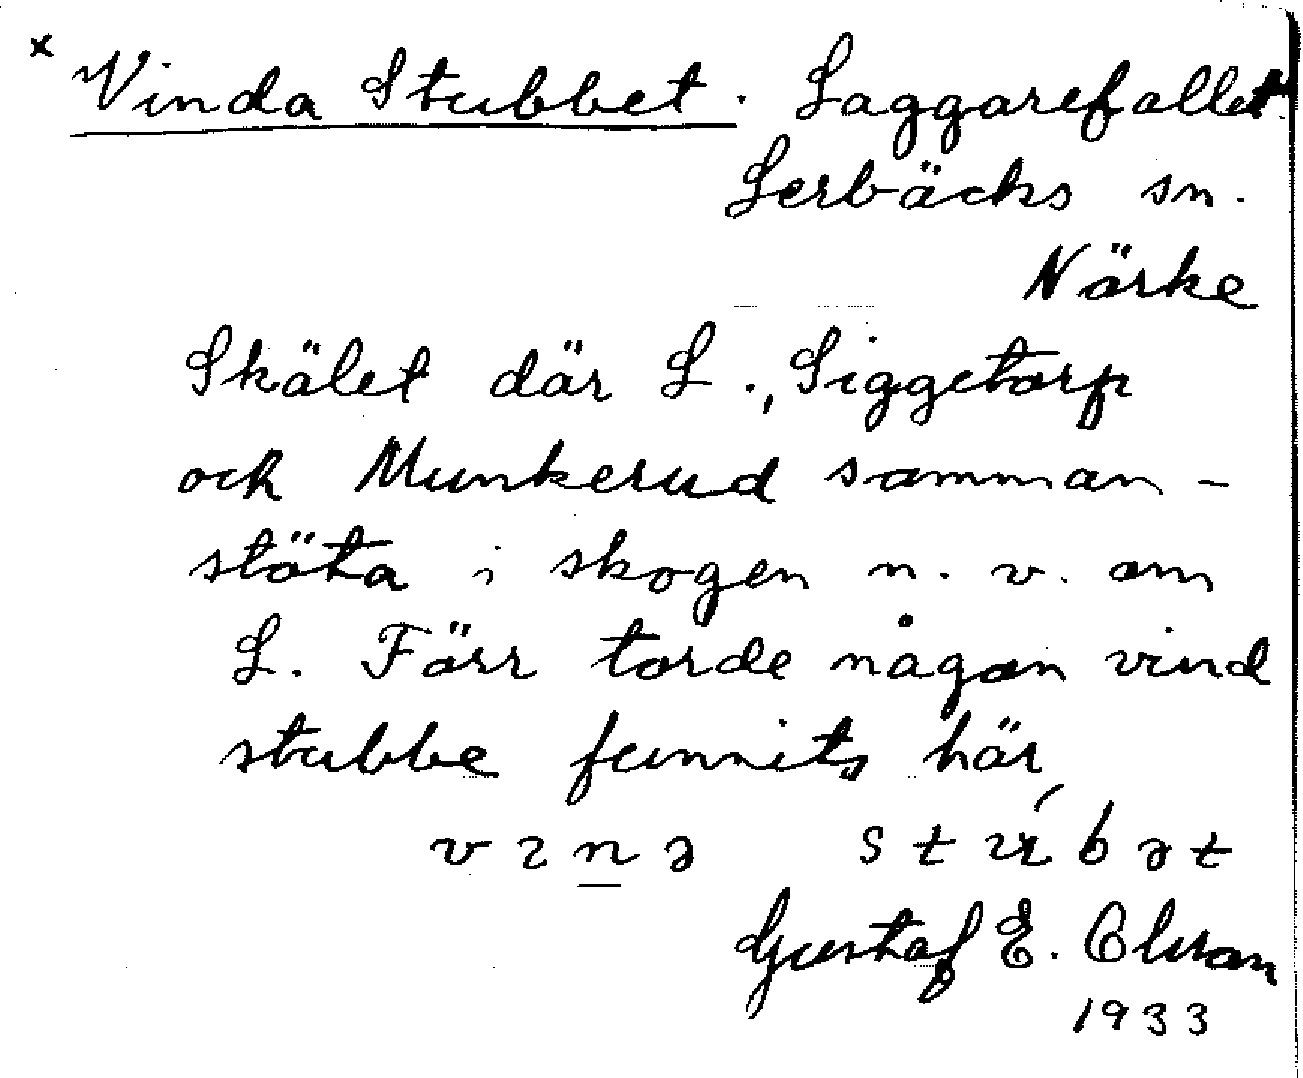 x Vinda Stubbet. Laggarefallet
Lerbäcks sn.
Närke
Skälet där L., Siggetorp
och Munkerud samman-
stöta i skogen n. v. om
L. Förr torde någon vind
stubbe funnits här
Gustaf E. Olsson
1933